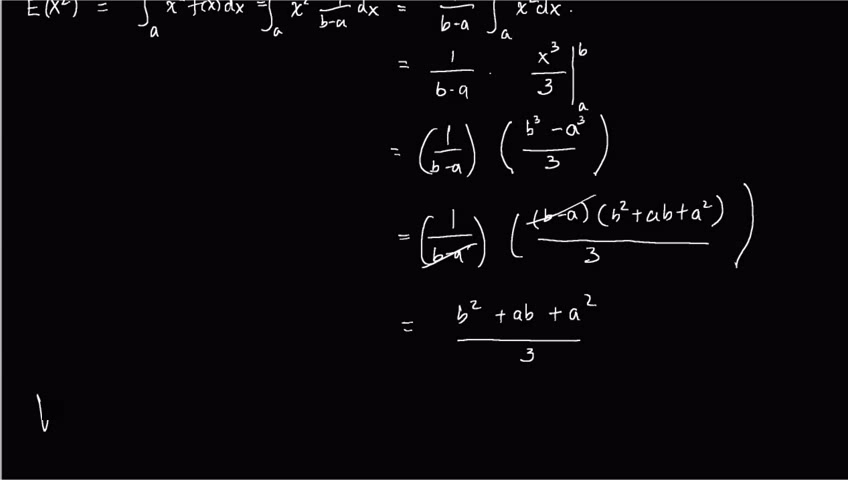 E(X²) = ∫ₐ x² f(x) dx = ∫ₐ x² 1/(b-a) dx = 1/(b-a) ∫ₐ x² dx.
= 1/(b-a) · x³/3 |ₐᵇ
= (1/(b-a)) ((b³-a³)/3)
= (1/(b-a)) ((b-a)(b²+ab+a²)/3)
= (b²+ab+a²)/3